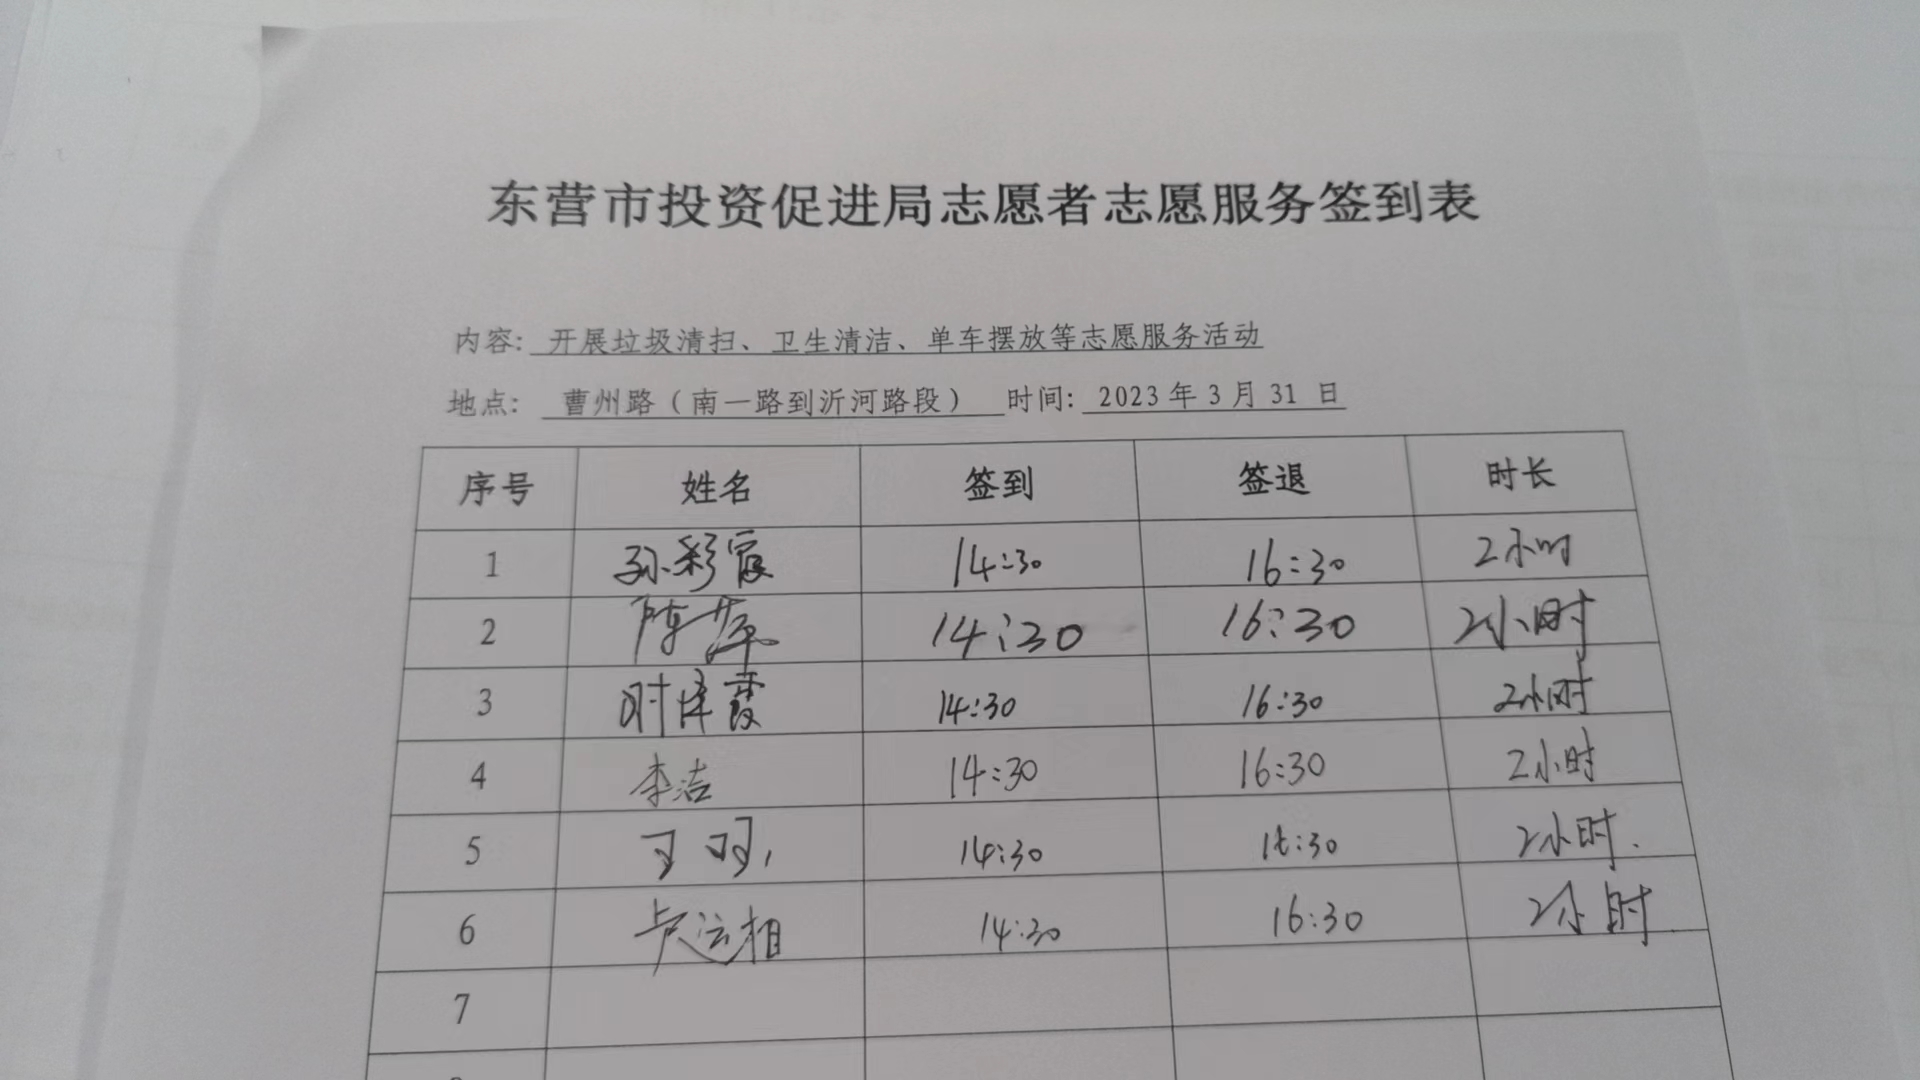 东营市投资促进局志愿者志愿服务签到表
内容: 开展垃圾清扫、卫生清洁、单车摆放等志愿服务活动
地点: 曹州路（南一路到沂河路段） 时间: 2023 年 3 月 31 日
序号 姓名 签到 签退 时长
1 孙彩霞 14:30 16:30 2小时
2 陈萍 14:30 16:30 2小时
3 时泽霞 14:30 16:30 2小时
4 李洁 14:30 16:30 2小时
5 14:30 16:30 2小时.
6 14:30 16:30 2小时
7